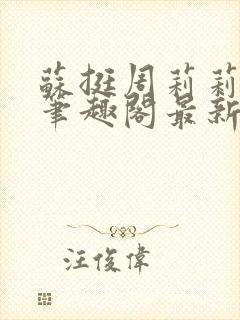 蘇挺周莉莉
筆趣閣最新
汪俊偉